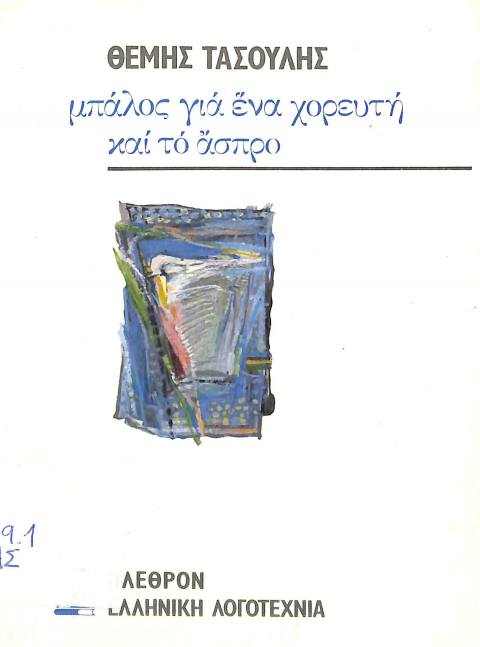 ΘΕΜΗΣ ΤΑΣΟΥΛΗΣ
μπάλος γιά ἕνα χορευτή
καί τό ἄσπρο
9.1
ΑΣ
ΠΛΕΘΡΟΝ
ΕΛΛΗΝΙΚΗ ΛΟΓΟΤΕΧΝΙΑ